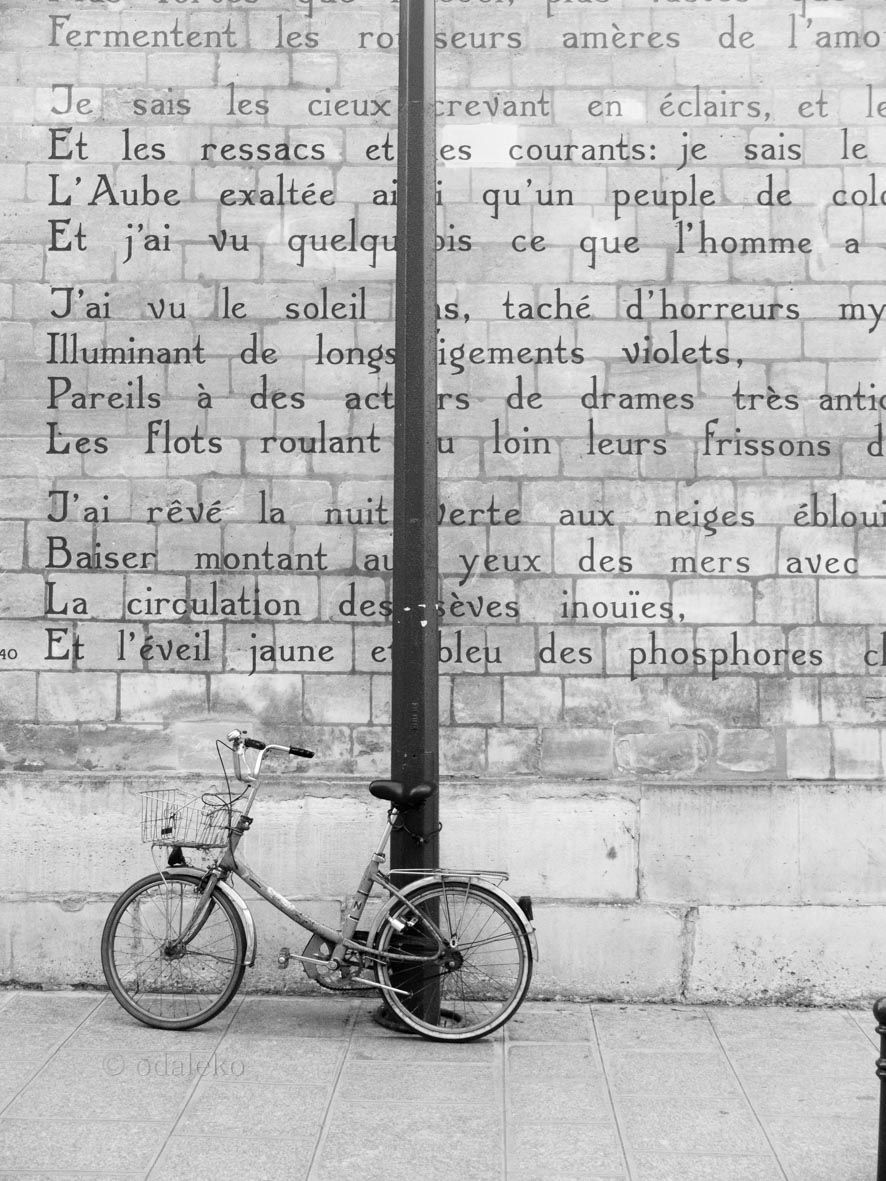 Plus fortes que l'alcool, plus vastes que
Fermentent les rousseurs amères de l'amo
Je sais les cieux crevant en éclairs, et le
Et les ressacs et les courants: je sais le
L'Aube exaltée ainsi qu'un peuple de colo
Et j'ai vu quelquefois ce que l'homme a
J'ai vu le soleil bas, taché d'horreurs my
Illuminant de longs figements violets,
Pareils à des acteurs de drames très antiq
Les flots roulant au loin leurs frissons d
J'ai rêvé la nuit verte aux neiges ébloui
Baiser montant aux yeux des mers avec
La circulation des sèves inouïes,
40 Et l'éveil jaune et bleu des phosphores ch
© odaleko